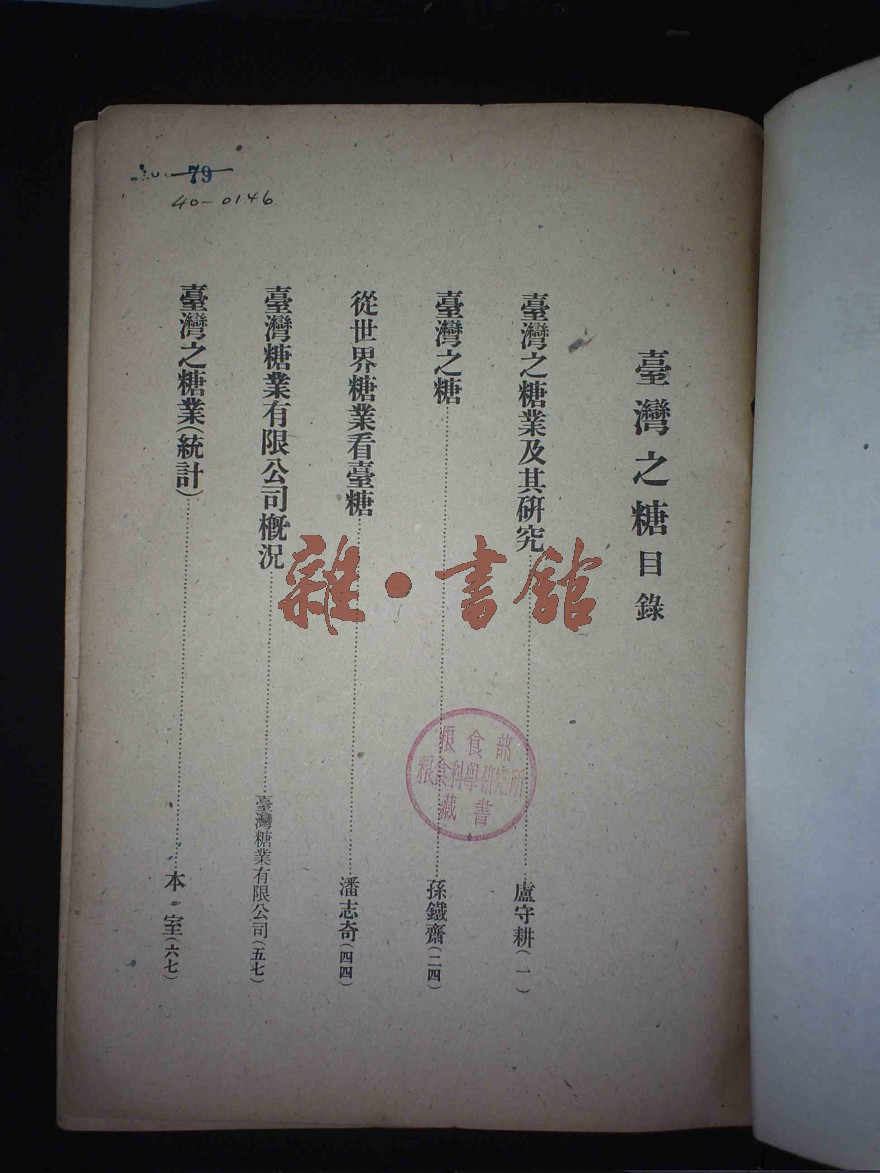 臺灣之糖目錄
臺灣之糖業及其研究⋯⋯盧守耕(一)
臺灣之糖⋯⋯孫鐵齋(二四)
從世界糖業看臺糖⋯⋯潘志奇(四四)
臺灣糖業有限公司概況⋯⋯臺灣糖業有限公司(五七)
臺灣之糖業(統計)⋯⋯本室(六七)
79
40-0146
粮食部
粮食科學研究所
藏書
雜·書館